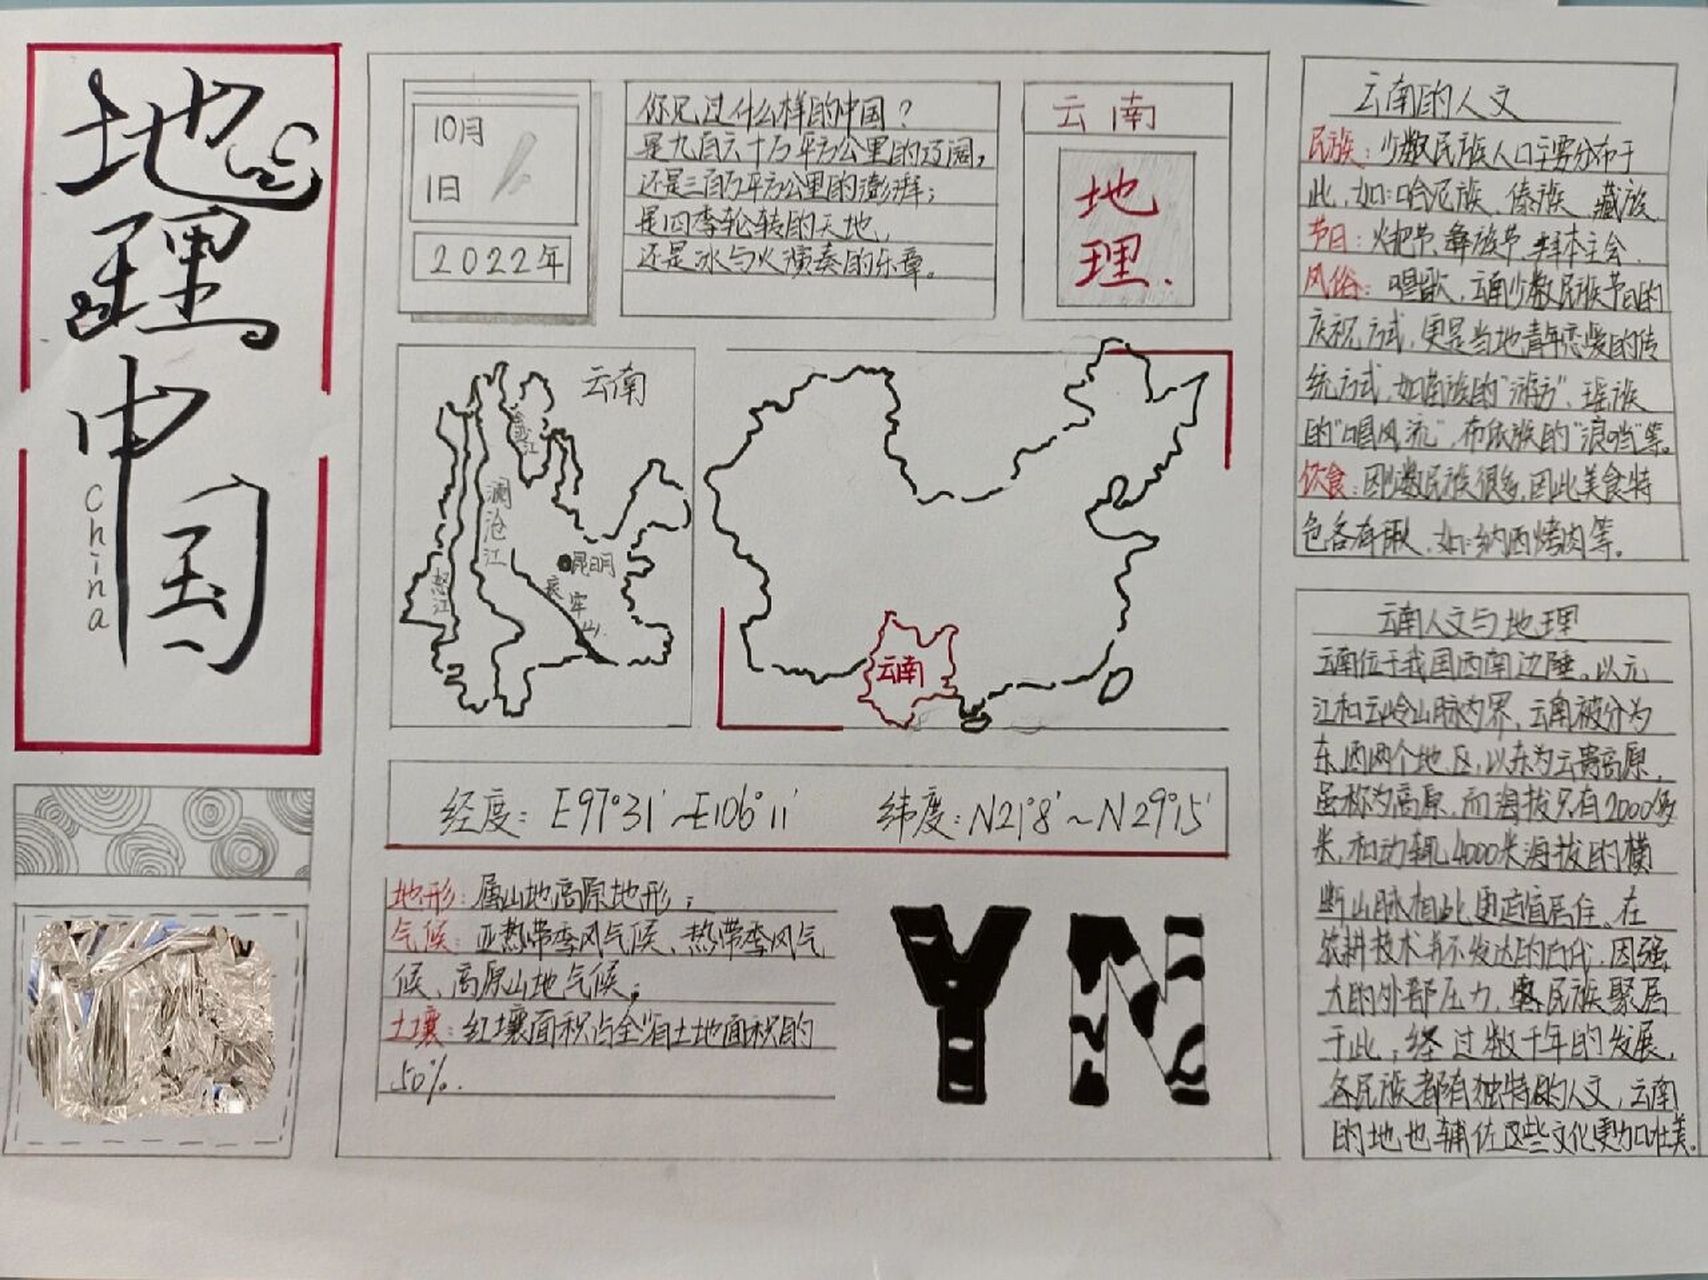 地
理
中
国
China
10月
1日
2022年
你见过什么样的中国？
是九百六十万平方公里的辽阔，
还是三百万平方公里的澎湃；
是四季轮转的天地，
还是冰与火演奏的乐章。
云南
地
理.
云南
澜沧江
怒江
昆明
哀牢山
云南
经度：E97°31′~E106°11′ 纬度：N21°8′~N29°15′
地形：属山地高原地形；
气候：亚热带季风气候、热带季风气
候、高原山地气候；
土壤：红壤面积占全省土地面积的
50%.
YN
云南的人文
民族：少数民族人口主要分布于
此，如：哈尼族、傣族、藏族
节日：火把节、
风俗：唱歌，云南少数民族节日的
庆祝方式，更是当地青年恋爱的传
统方式，如苗族的“游方”、瑶族
的“唱风流”，布依族的“浪哨”等。
饮食：因少数民族很多，因此美食特
色各有千秋，如：纳西烤肉等。
云南人文与地理
云南位于我国西南边陲。以元
江和云岭山脉为界，云南被分为
东西两个地区，以东为云贵高原，
虽称为高原，而海拔只有2000多
米，和动辄4000米海拔的横
断山脉相比更适宜居住、在
农耕技术并不发达的古代，因强
大的外部压力，民族聚居
于此，经过数千年的发展，
各民族都有独特的人文，云南
的地也辅佐这些文化更加壮美。